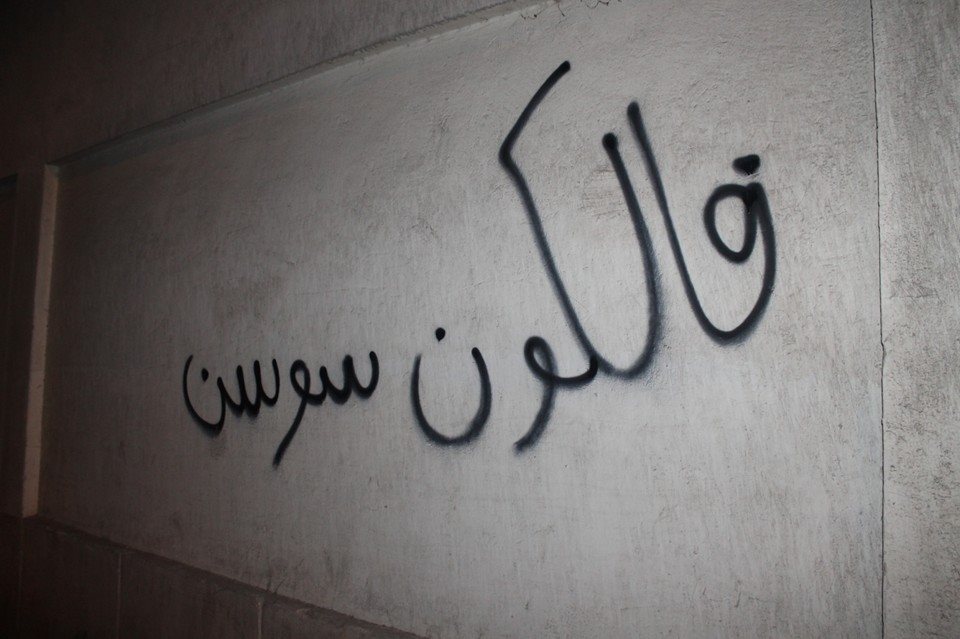 فالكون سوسن